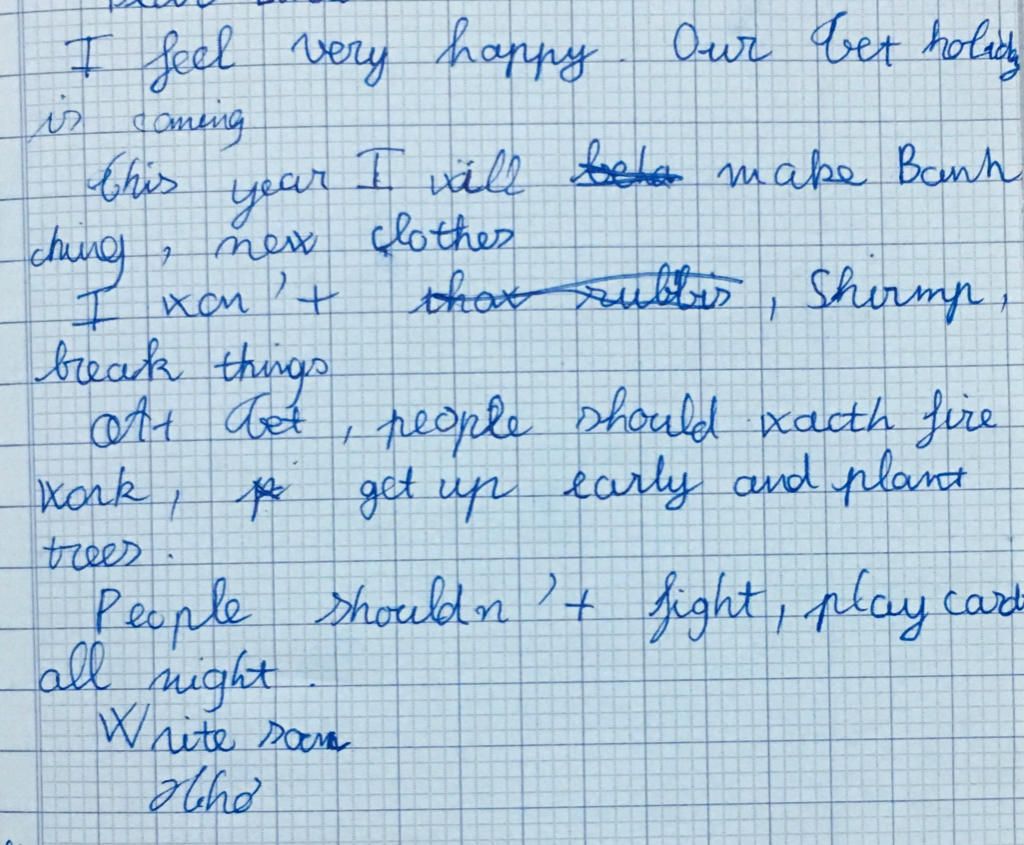 I feel very happy. Our Tet holiday
is coming
this year I will make Banh
chung, new clothes
I won't, Shirmp,
break things
At Tet, people should wacth fire
work, get up early and plant
trees.
People shouldn't fight, play card
all night.
Write soon